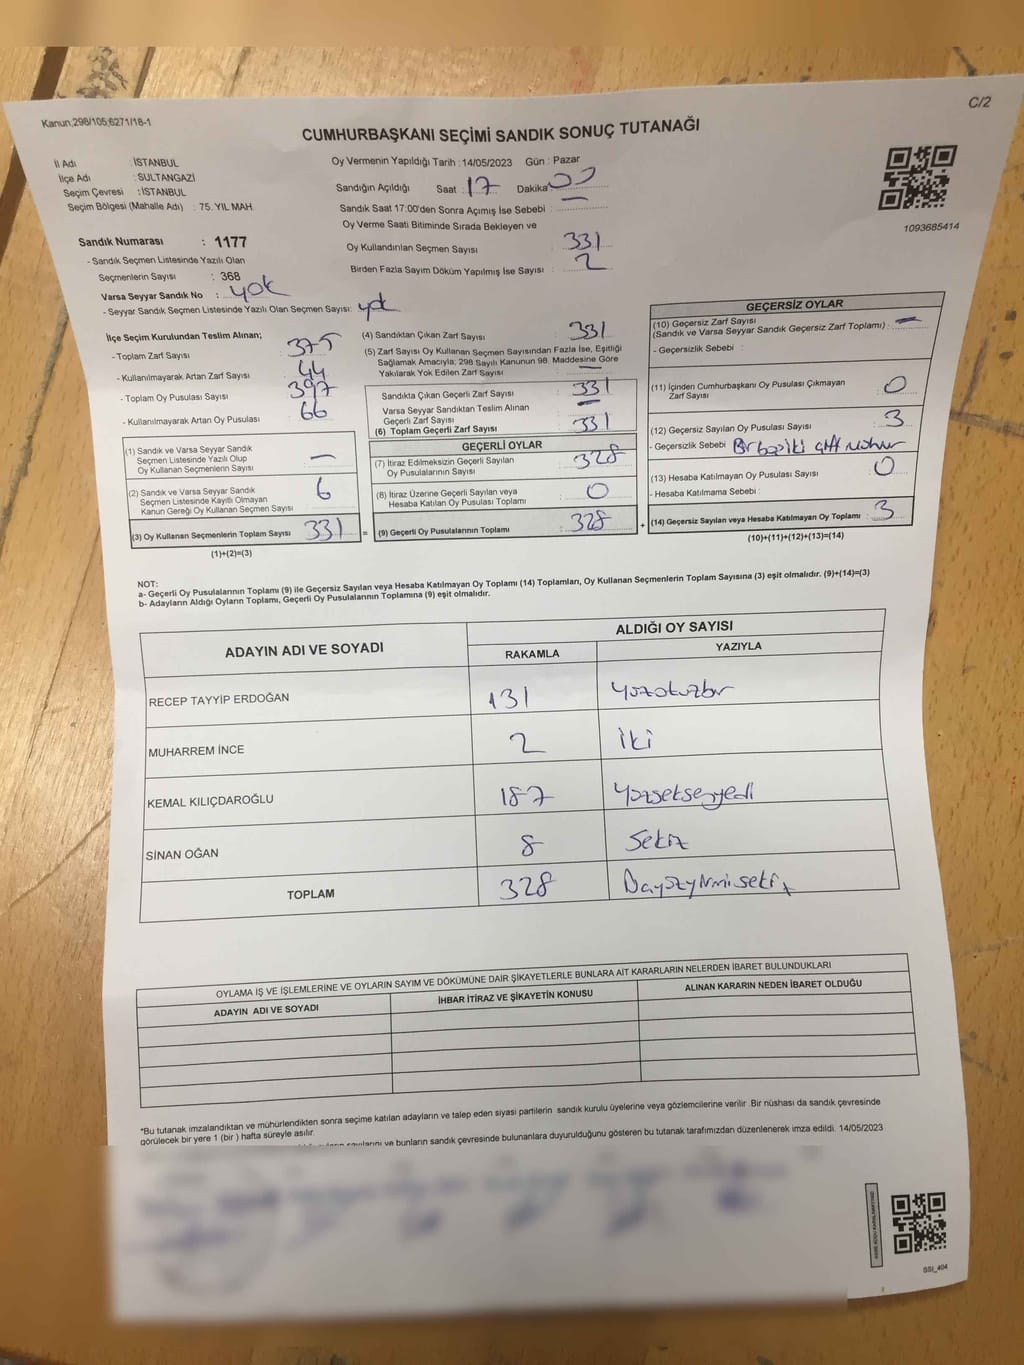 Kanun;298/105;6271/18-1
C/2
CUMHURBAŞKANI SEÇİMİ SANDIK SONUÇ TUTANAĞI
İl Adı : İSTANBUL
İlçe Adı : SULTANGAZİ
Seçim Çevresi : İSTANBUL
Seçim Bölgesi (Mahalle Adı) : 75. YIL MAH.
Sandık Numarası : 1177
- Sandık Seçmen Listesinde Yazılı Olan
Seçmenlerin Sayısı : 368
Varsa Seyyar Sandık No : yok
- Seyyar Sandık Seçmen Listesinde Yazılı Olan Seçmen Sayısı: yok
Oy Vermenin Yapıldığı Tarih : 14/05/2023 Gün : Pazar
Sandığın Açıldığı Saat : 17 Dakika
Sandık Saat 17:00'den Sonra Açımış İse Sebebi : —
Oy Verme Saati Bitiminde Sırada Bekleyen ve
Oy Kullandırılan Seçmen Sayısı : 331
Birden Fazla Sayım Döküm Yapılmış İse Sayısı : 2
1093685414
İlçe Seçim Kurulundan Teslim Alınan;
- Toplam Zarf Sayısı : 375
- Kullanılmayarak Artan Zarf Sayısı : 44
- Toplam Oy Pusulası Sayısı : 397
- Kullanılmayarak Artan Oy Pusulası : 66
(1) Sandık ve Varsa Seyyar Sandık
Seçmen Listesinde Yazılı Olup
Oy Kullanan Seçmenlerin Sayısı : —
(2) Sandık ve Varsa Seyyar Sandık
Seçmen Listesinde Kayıtlı Olmayan
Kanun Gereği Oy Kullanan Seçmen Sayısı : 6
(3) Oy Kullanan Seçmenlerin Toplam Sayısı : 331 =
(1)+(2)=(3)
(4) Sandıktan Çıkan Zarf Sayısı : 331
(5) Zarf Sayısı Oy Kullanan Seçmen Sayısından Fazla İse, Eşitliği
Sağlamak Amacıyla; 298 Sayılı Kanunun 98. Maddesine Göre
Yakılarak Yok Edilen Zarf Sayısı : —
Sandıkta Çıkan Geçerli Zarf Sayısı : 331
Varsa Seyyar Sandıktan Teslim Alınan
Geçerli Zarf Sayısı : —
(6) Toplam Geçerli Zarf Sayısı : 331
GEÇERLİ OYLAR
(7) İtiraz Edilmeksizin Geçerli Sayılan
Oy Pusulalarının Sayısı : 328
(8) İtiraz Üzerine Geçerli Sayılan veya
Hesaba Katılan Oy Pusulası Toplamı : 0
(9) Geçerli Oy Pusulalarının Toplamı : 328 +
GEÇERSİZ OYLAR
(10) Geçersiz Zarf Sayısı
(Sandık ve Varsa Seyyar Sandık Geçersiz Zarf Toplamı) : —
- Geçersizlik Sebebi :
(11) İçinden Cumhurbaşkanı Oy Pusulası Çıkmayan
Zarf Sayısı : 0
(12) Geçersiz Sayılan Oy Pusulası Sayısı : 3
- Geçersizlik Sebebi
(13) Hesaba Katılmayan Oy Pusulası Sayısı : 0
- Hesaba Katılmama Sebebi :
(14) Geçersiz Sayılan veya Hesaba Katılmayan Oy Toplamı : 3
(10)+(11)+(12)+(13)=(14)
NOT:
a- Geçerli Oy Pusulalarının Toplamı (9) ile Geçersiz Sayılan veya Hesaba Katılmayan Oy Toplamı (14) Toplamları, Oy Kullanan Seçmenlerin Toplam Sayısına (3) eşit olmalıdır. (9)+(14)=(3)
b- Adayların Aldığı Oyların Toplamı, Geçerli Oy Pusulalarının Toplamına (9) eşit olmalıdır.
ADAYIN ADI VE SOYADI ALDIĞI OY SAYISI
RAKAMLA YAZIYLA
RECEP TAYYİP ERDOĞAN 131 Yüzotuzbir
MUHARREM İNCE 2 İki
KEMAL KILIÇDAROĞLU 187 Yüzseksenyedi
SİNAN OĞAN 8 Sekiz
TOPLAM 328
OYLAMA İŞ VE İŞLEMLERİNE VE OYLARIN SAYIM VE DÖKÜMÜNE DAİR ŞİKAYETLERLE BUNLARA AİT KARARLARIN NELERDEN İBARET BULUNDUKLARI
ADAYIN ADI VE SOYADI İHBAR İTİRAZ VE ŞİKAYETİN KONUSU ALINAN KARARIN NEDEN İBARET OLDUĞU
*Bu tutanak imzalandıktan ve mühürlendikten sonra seçime katılan adayların ve talep eden siyasi partilerin sandık kurulu üyelerine veya gözlemcilerine verilir .Bir nüshası da sandık çevresinde
görülecek bir yere 1 (bir ) hafta süreyle asılır.
ve bunların sandık çevresinde bulunanlara duyurulduğunu gösteren bu tutanak tarafımızdan düzenlenerek imza edildi. 14/05/2023
SSI_404